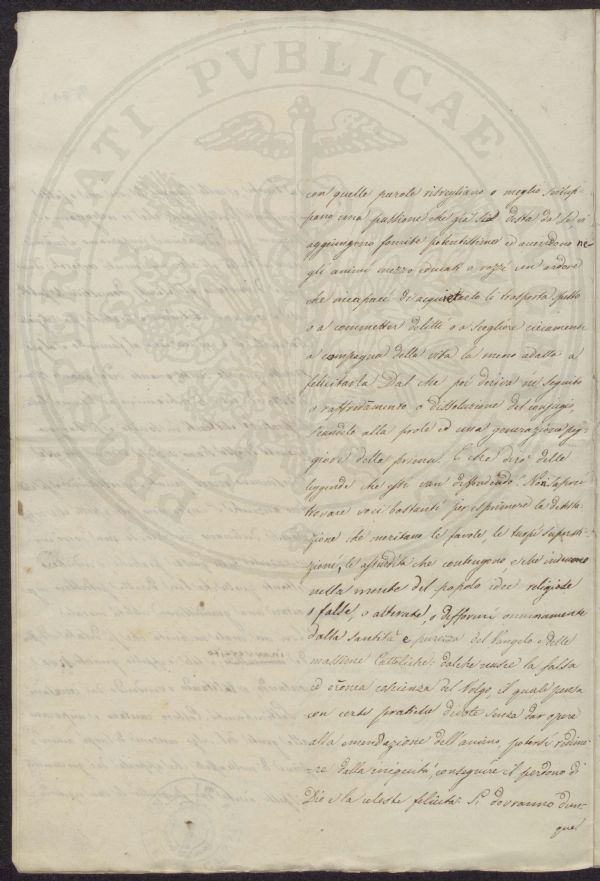 PROSPERITATI PVBLICAE
con quelle parole risvegliano o meglio svilup-
pano una passione che già desta da se vi
aggiungono fomite potentissimo ed accendono ne-
gli animi mezzo educati o rozzi un' ardore
che incapaci di acquietarlo li trasporta spesso
o a commetter delitti o a scegliere ciecamente
a compagna della vita la meno adatta a
felicitarla. Dal che poi deriva in seguito
o raffreddamento o dissoluzione del conjugio,
scandalo alla prole ed una generazione peg-
giore della prima. E che dirò delle
leggende che essi van diffondendo? Non saprei
trovare voci bastanti per esprimere la detesta-
zione che meritano le favole, le turpi supersti-
zioni, le assurdità che contengono, e che inducono
nella mente del popolo idee religiose
o false, o alterate, o difformi onninamente
dalla santità e purezza del Vangelo e delle
massime Cattoliche: dal che nasce la falsa
ed erronea coscienza del Volgo, il quale pensa
con certe pratiche devote senza dar opera
alla emendazione dell'animo, potersi redime-
re dalla iniquità conseguire il perdono di
Dio e la celeste felicità. Si dovranno dun-
que